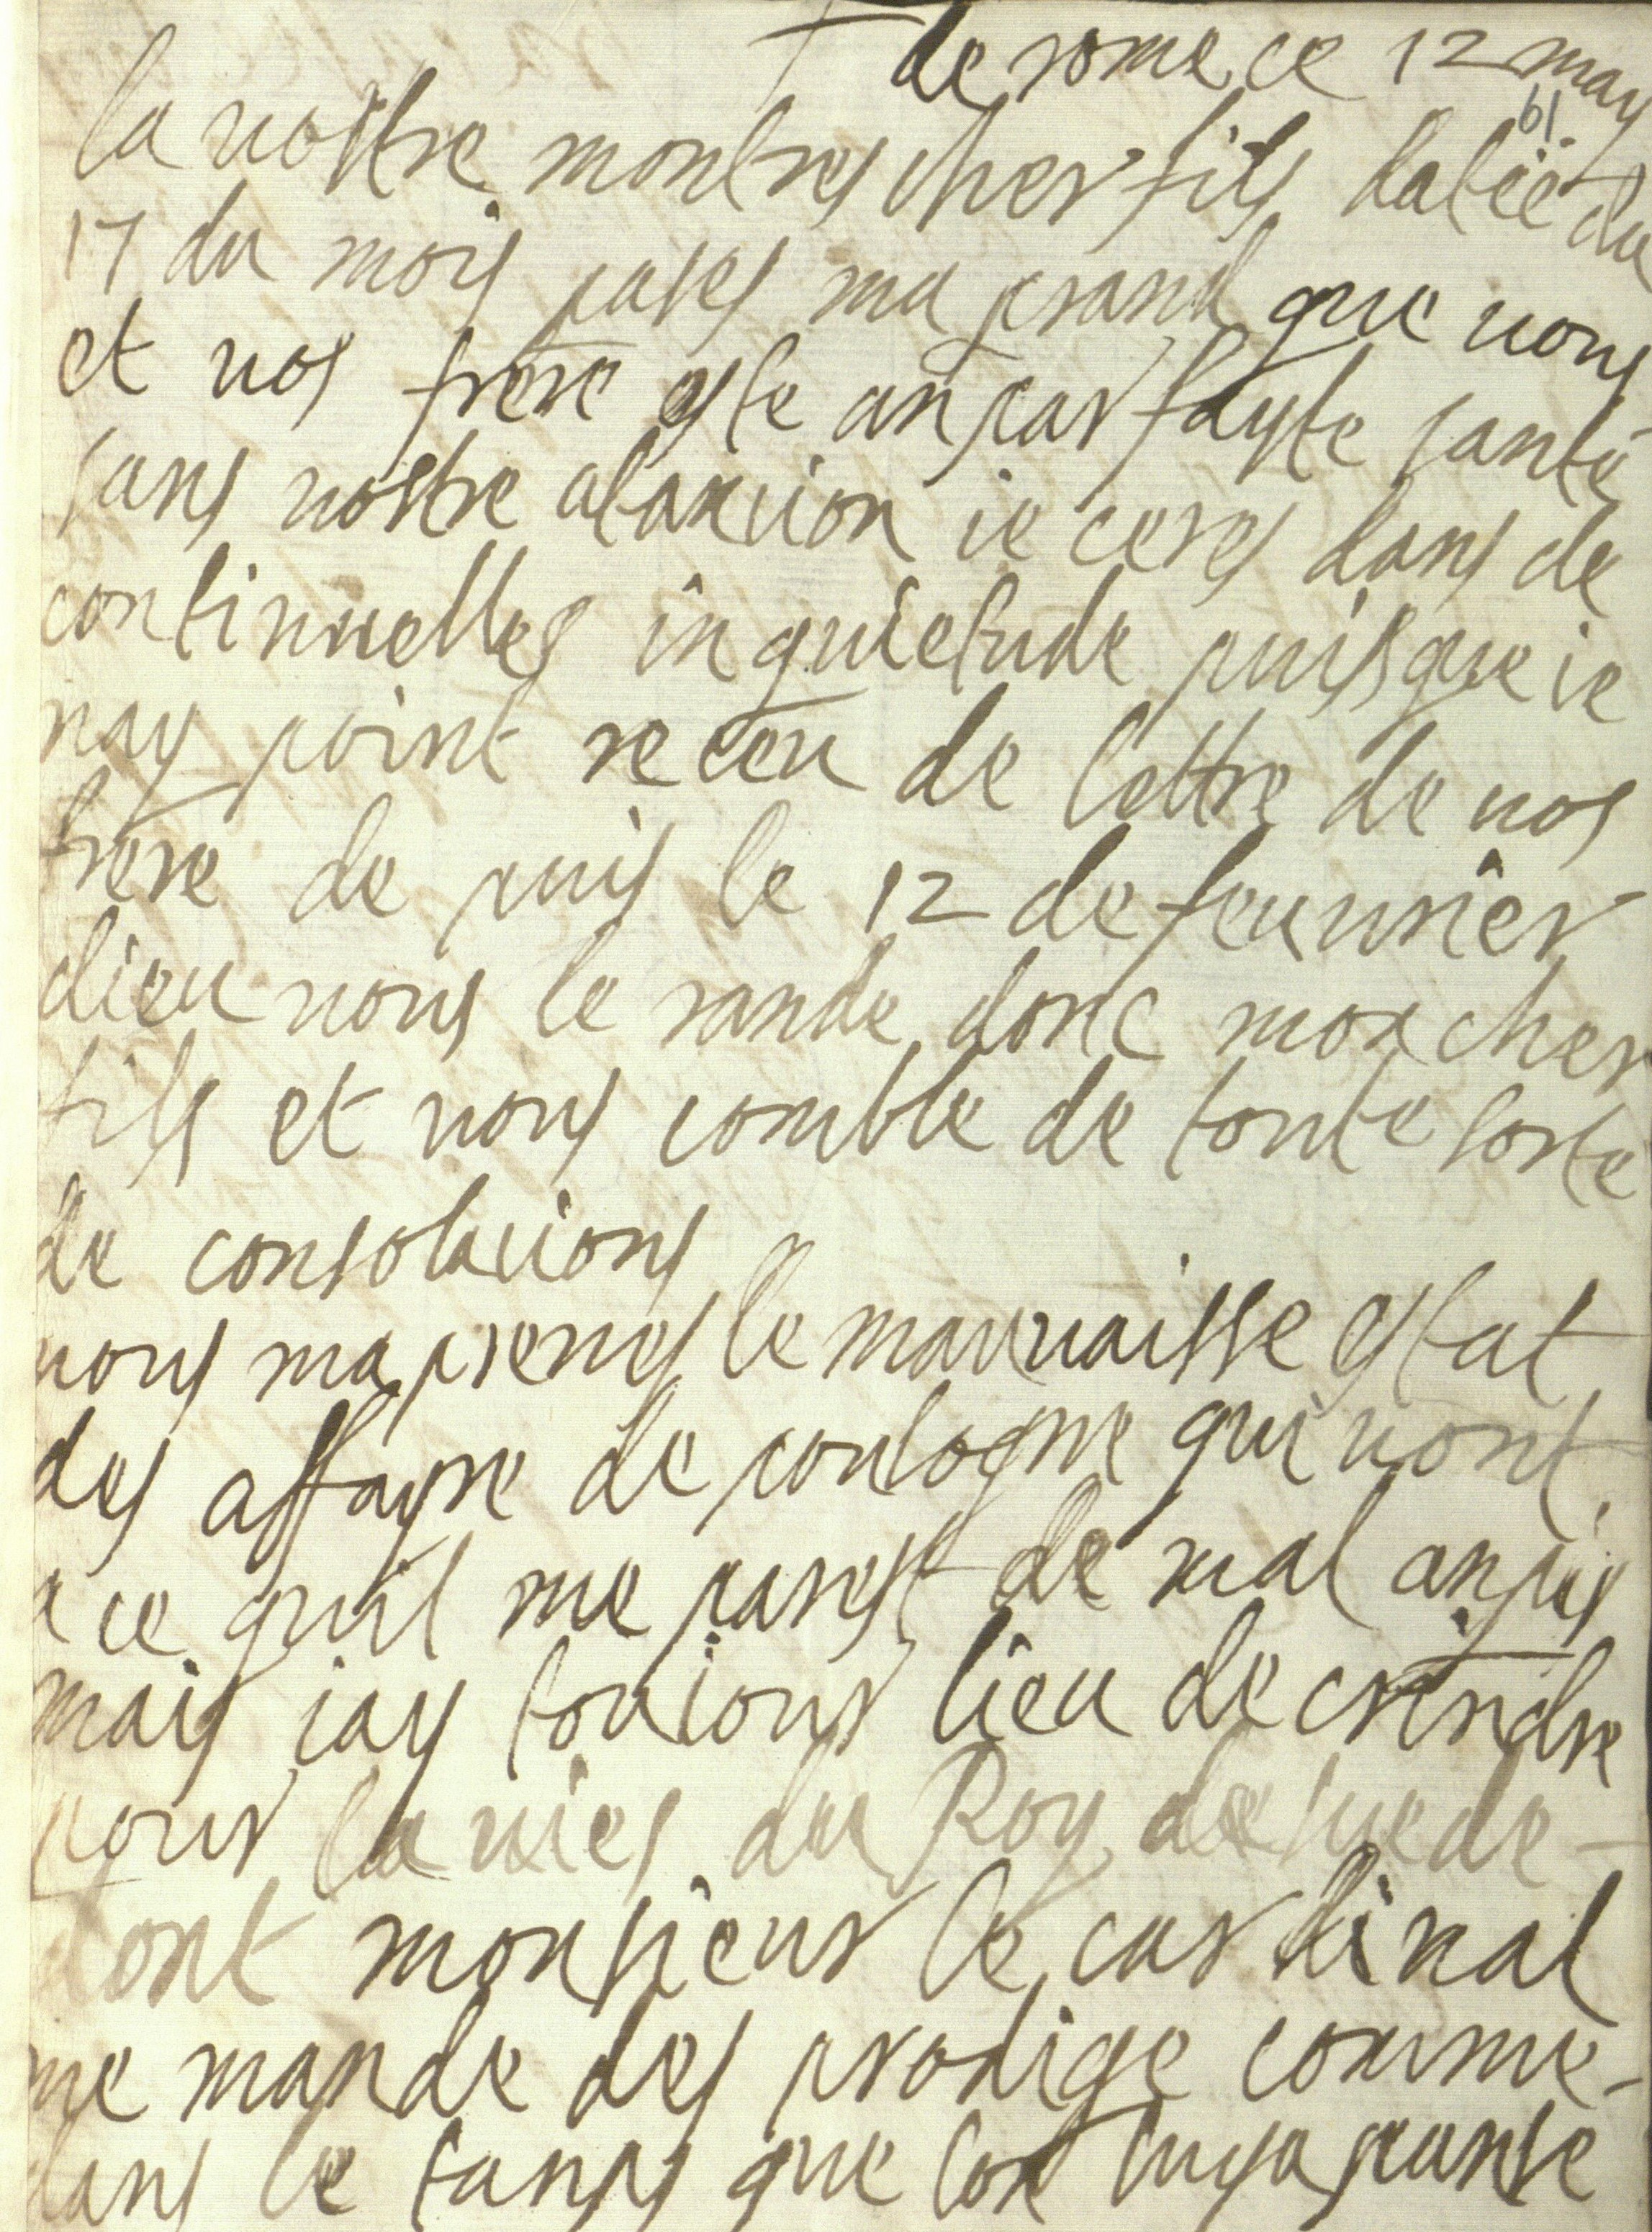 de rome ce 12 may
61
la vostre mon tres cher fils datëe du
17 du mois pases ma prand que vous
et vos frere este an parfayte santé
sans vostre atanxion ie ceres dans de
continuelles inquietude puisque ie
nay point receu de lettre de vos
frere de puis le 12 de feuvrier
dieu vous le rande donc mon cher
fils et vous comble de toute sorte
de consolacions
vous maprenes le mauvaisse estat
des affayre de poulogne qui vont
a ce quil me parest de mal an pis
mais iay toujours lieu de creindre
pour la vies du Roy de suede
dont monsieur le cardinal
me mande des prodige comme
dans le tanps que lon luy a panse